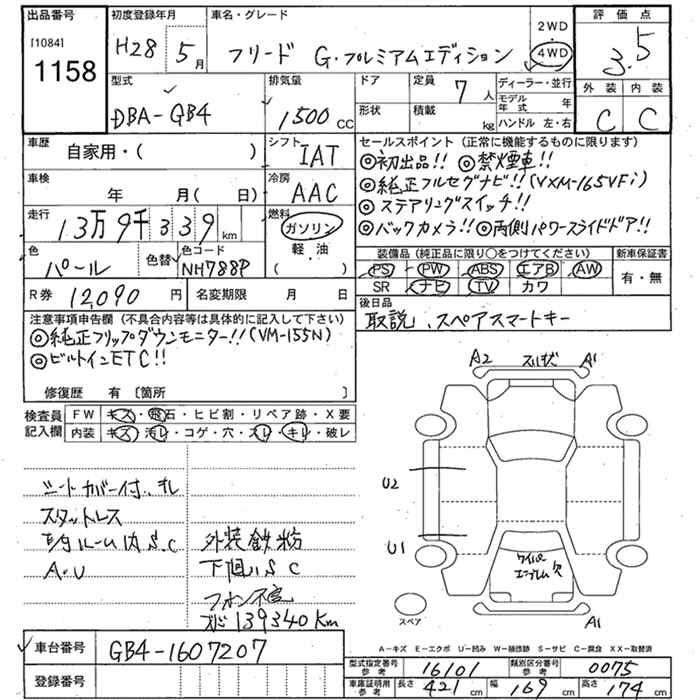 出品番号
[1084]
1158
初度登録年月
H28 5月
車名・グレード
フリード G・プレミアムエディション
2WD
・
4WD
評価点
3.5
外装 内装
C C
型式
DBA-GB4
排気量
1500 CC
ドア
定員 7人
形状
積載 kg
ディーラー・並行
モデル年式 年
ハンドル 左・右
車歴
自家用・( )
シフト
IAT
車検
年 月( 日)
冷房
AAC
走行
13万9千339 km
燃料
ガソリン
軽・油
( )
色
パール
色替
色コード
NH788P
R券 12,090 円
名変期限 月 日
セールスポイント (正常に機能するものに限ります)
◎初出品!! ◎禁煙車!!
◎純正フルセグナビ!!(VXM-165VFi)
◎ステアリングスイッチ!!
◎バックカメラ!! ◎両側パワースライドドア!!
装備品(純正品に限り〇をつけてください)
新車保証書
PS PW ABS エアB AW
SR ナビ TV カワ
有・無
後日品
取説、スペアスマートキー
注意事項申告欄(不具合内容等は具体的に記入して下さい)
◎純正フリップダウンモニター!!(VM-155N)
◎ビルトインETC!!
修復歴 有〔箇所 〕
検査員記入欄
FW キズ・飛石・ヒビ割・リペア跡・X要
内装 キズ・汚レ・コゲ・穴・スレ・キレ・破レ
シートカバー付、キレ
スタットレス
ルーム内S.C
A.U
外装鉄粉
下廻りSC
139340Km
A2 A1
U2
U1
ワイパー
エンブレム欠
A1
スペア
A-キズ E-エクボ U-凹み W-補修跡 S-サビ C-腐食 XX-取替済
車台番号 GB4-1607207
登録番号
型式指定番号 参考 16101
類別区分番号 参考 0075
車庫証明用 参考 長さ 421 cm 幅 169 cm 高さ 174 cm